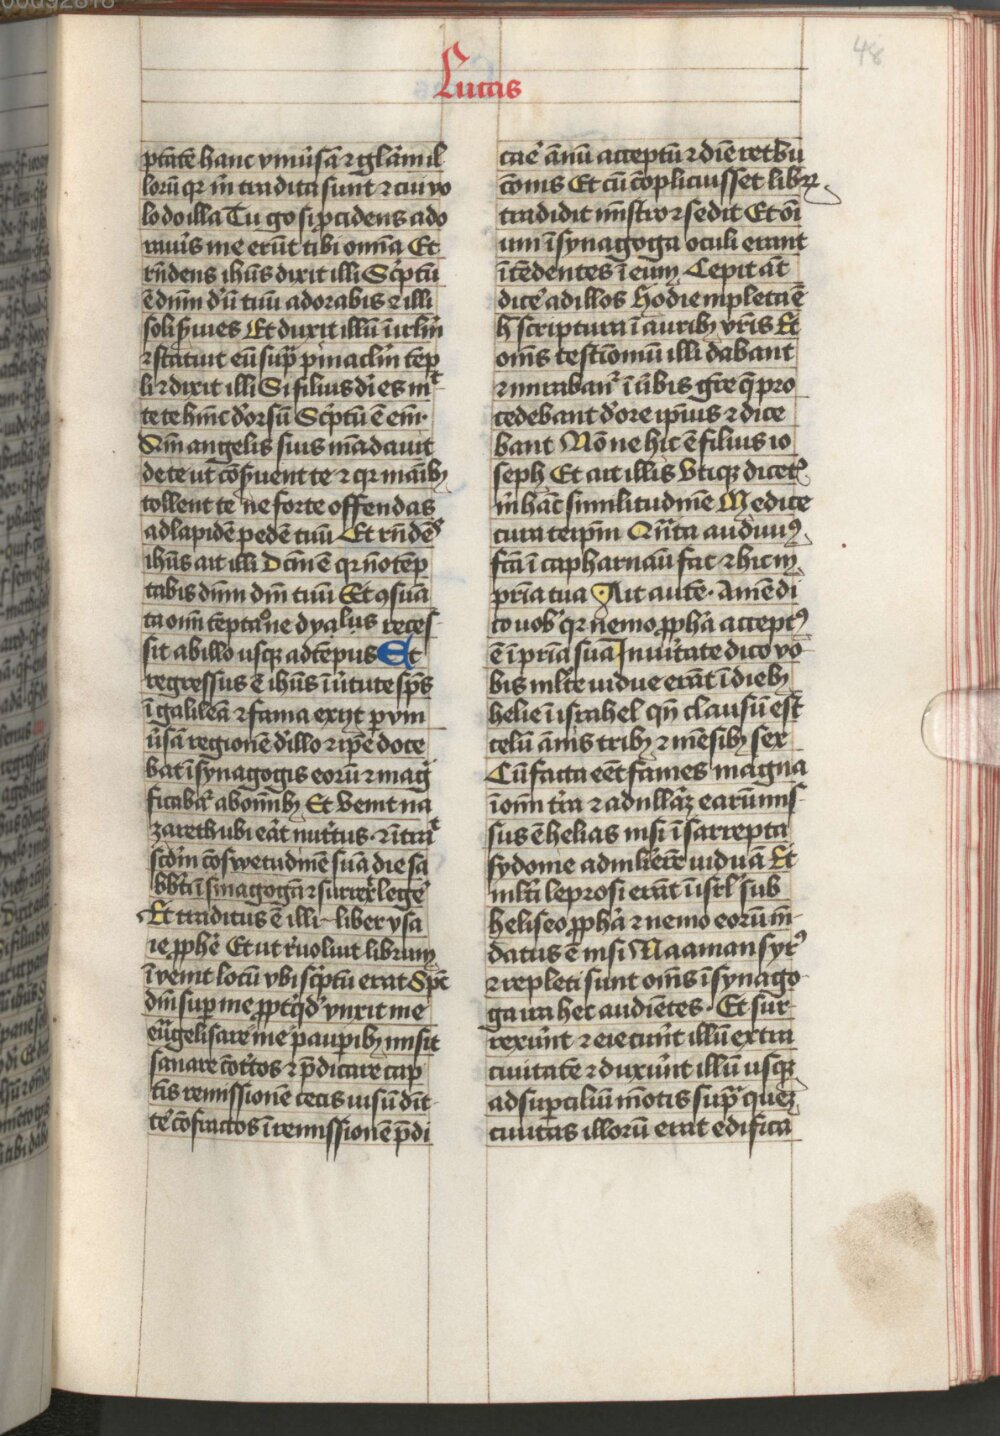 48
Lucas
ptatē hanc vniūsā ⁊ glām il
lorū qr m̄ tradita sunt ⁊ cui vo
lo do illa Tu gͦ si ꝓcidens ado
raūis me erūt tibi om̄ia Et
rn̄dens ihūs dixit illi Scͥptū
ē dn̄m dm̄ tuū adorabis ⁊ illi
soli ẜuies Et duxit illū ī irlm̄
⁊ statuit eū supͣ pinaclm̄ tēp
li ⁊ dixit illi Si filius di es mͭ
te te hinc dorsū Scͥptū ē em̄·
Qm̄ angelis suis mādauit
de te ut cōẜuent te ⁊ qr māibꝫ
tollent te ne forte offendas
ad lapidē pedē tuū Et rn̄dēs
ihūs ait illi Dc̄m ē qr nō tēp
tabis dn̄m dm̄ tuū Et ꝯsūa
ta om̄i tēptaͦne dyalus reces
sit ab illo usqꝫ ad tēpus Et
regressus ē ihūs ī ūtute sp̄s
ī galileā ⁊ fama exijt ꝑ vni
ūsā regionē d̄ illo ⁊ ip̄e doce
bat ī synagogis eorū ⁊ mag
ficabaͬ ab om̄ibꝫ Et Venit na
zareth ubi eāt nutͥtus· ⁊ ītͣuͭ
scd̄m cōswetudinē suā die sa
bbti ī sinagogā ⁊ surrex̄ legē
Et traditus ē illi liber ysa
ie ꝓphē Et ut r̄uoluit librum
īvenit locū vbi scͥptū erat Sp̄c
dm̄ super me ꝓptͤ qd̄ vnxit me
eūgelisare me pauꝑibꝫ misit
sanare cōtͥtos ⁊ p̄dicare cap
tīs remissionē cecis uisū dīt
tē cōfractos ī remissionē p̄di
cae ānū acceptū ⁊ diē retbu
cōnis Et cū cōplicuisset librꝫ
tradidit mīstro ⁊ sedit Et oī
um ī synagoga oculi erant
ītēdentes ī eum Cepit āt
dicē ad illos Hodie impleta ē
h̄ scriptura ī auribꝫ vr̄is Et
om̄s testīomū illi dabant
⁊ mirabanͬ ī v̄bis gr̄e q̄ pro
cedebant d̄ ore ip̄ius ⁊ dice
bant Nōne hic ē filius io
seph Et ait illis Vtiqꝫ dicetͥ
m̄ hāc similitudinē Medice
cura teip̄m Qn̄ta audiuiꝰ
fcā ī capharnaū fac ⁊ hic in
pr̄ia tua Ait autē· Amē di
co uob̄ qr nemo ꝓphā acceptꝰ
ē ī pr̄ia sua In ūitate dico vo
bis mlt̄e uidue erāt ī diebꝫ
helie ī israhel qn̄ clausū est
celū ānis tribꝫ ⁊ mēsibꝫ sex
Cū facta eēt fames magna
ī om̄i tr̄a ⁊ ad nllāꝫ earū mis
sus ē helias nisi ī sarrepta
sydonie ad mlieͬē uiduā Et
mlti leprosi erāt ī isrl̄ sub
heliseo ꝓphā ⁊ nemo eorū m̄
datus ē nisi Naaman syrꝰ
⁊ repleti sunt om̄s ī synago
ga ira hec audiētes· Et sur
rexūnt ⁊ eiecūnt illū extra
ciuitatē ⁊ duxūnt illū usqꝫ
ad suꝑciliū mōtis supͣ quez
ciuitas illorū erat edifica